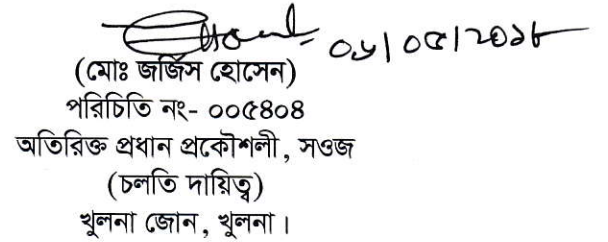 ০৬/০৫/২০১৮
(মোঃ জর্জিস হোসেন)
পরিচিতি নং- ০০৫৪০৪
অতিরিক্ত প্রধান প্রকৌশলী, সওজ
(চলতি দায়িত্ব)
খুলনা জোন, খুলনা।